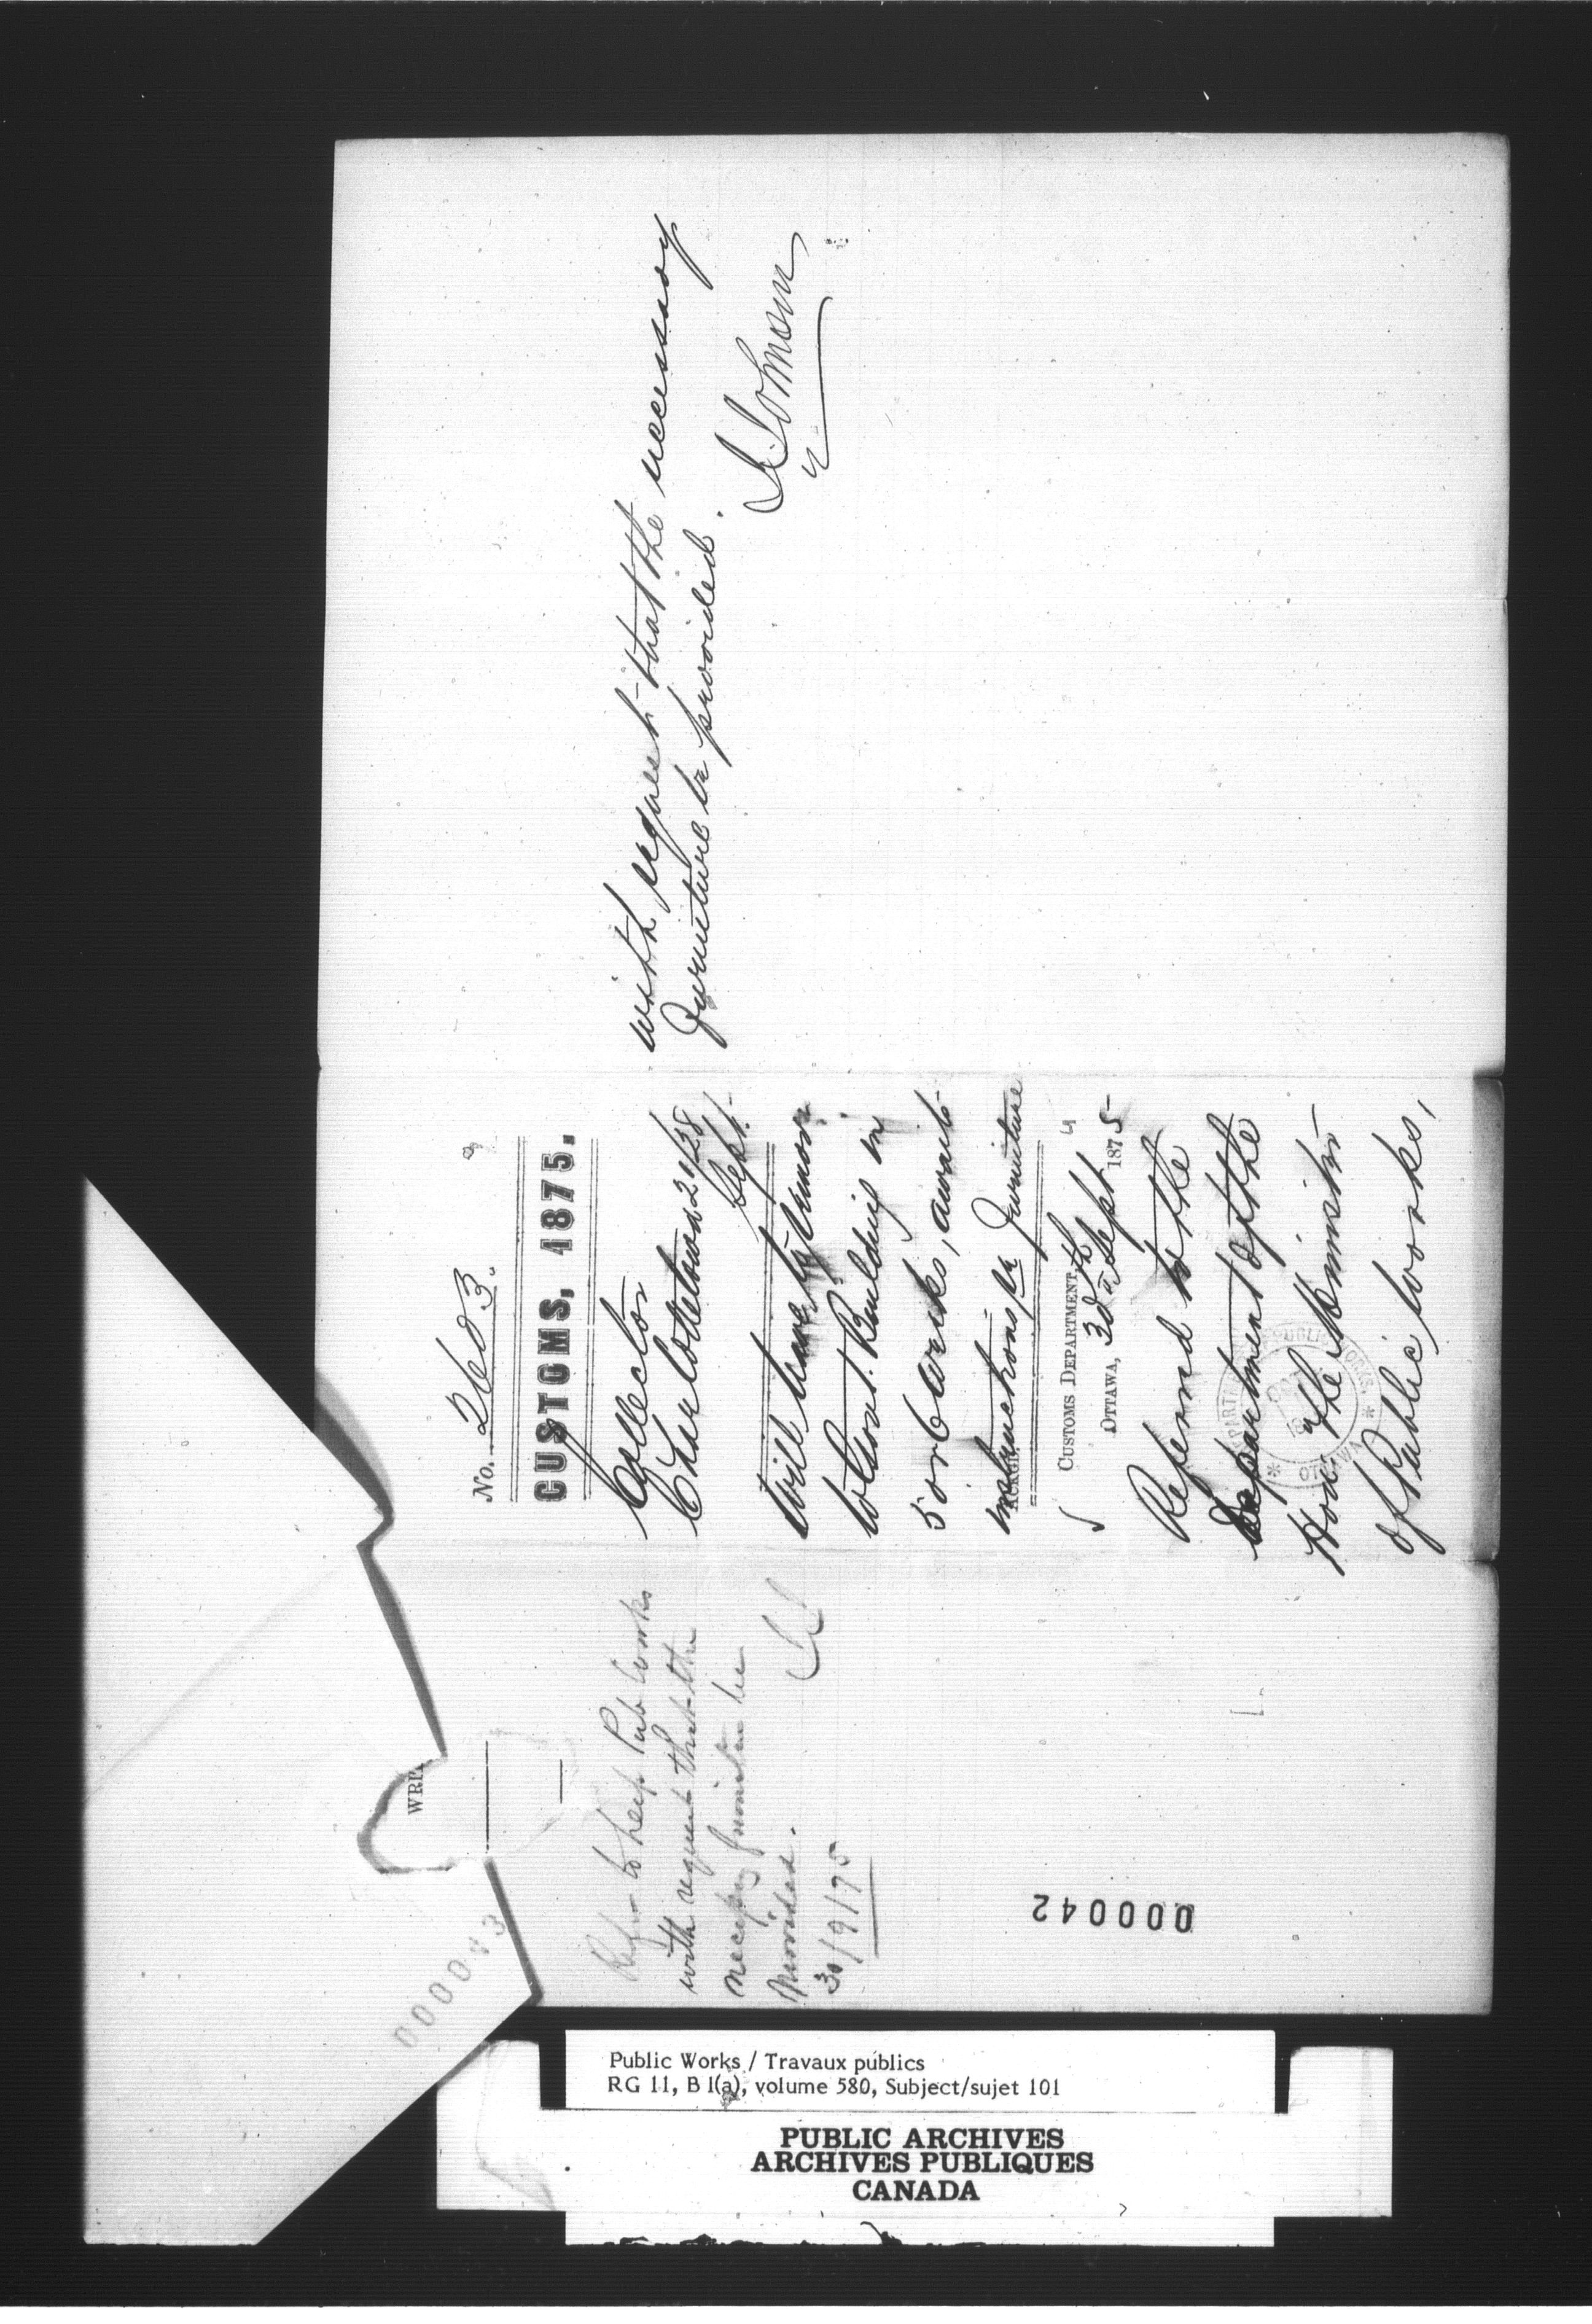 No. 2603.
CUSTOMS, 1875.
Collector
Charlottetown 28
Sept.
Will have to remove
to Govt. Building in
5 or 6 weeks, awaits
instructions re Furniture
CUSTOMS DEPARTMENT,
OTTAWA, 30th Sept 1875
Referred to the
Department of the
Hon. the Minister
of Public Works,
with request that the necessary
furniture be provided.
J Johnson
Refer to Dept Pub Works
with request that the
necessary furniture be
provided.
30/9/75
WRI
000042
000043
DEPARTMENT PUBLIC WORKS
OTTAWA
Public Works / Travaux publics
RG 11, B 1(a), volume 580, Subject/sujet 101
PUBLIC ARCHIVES
ARCHIVES PUBLIQUES
CANADA